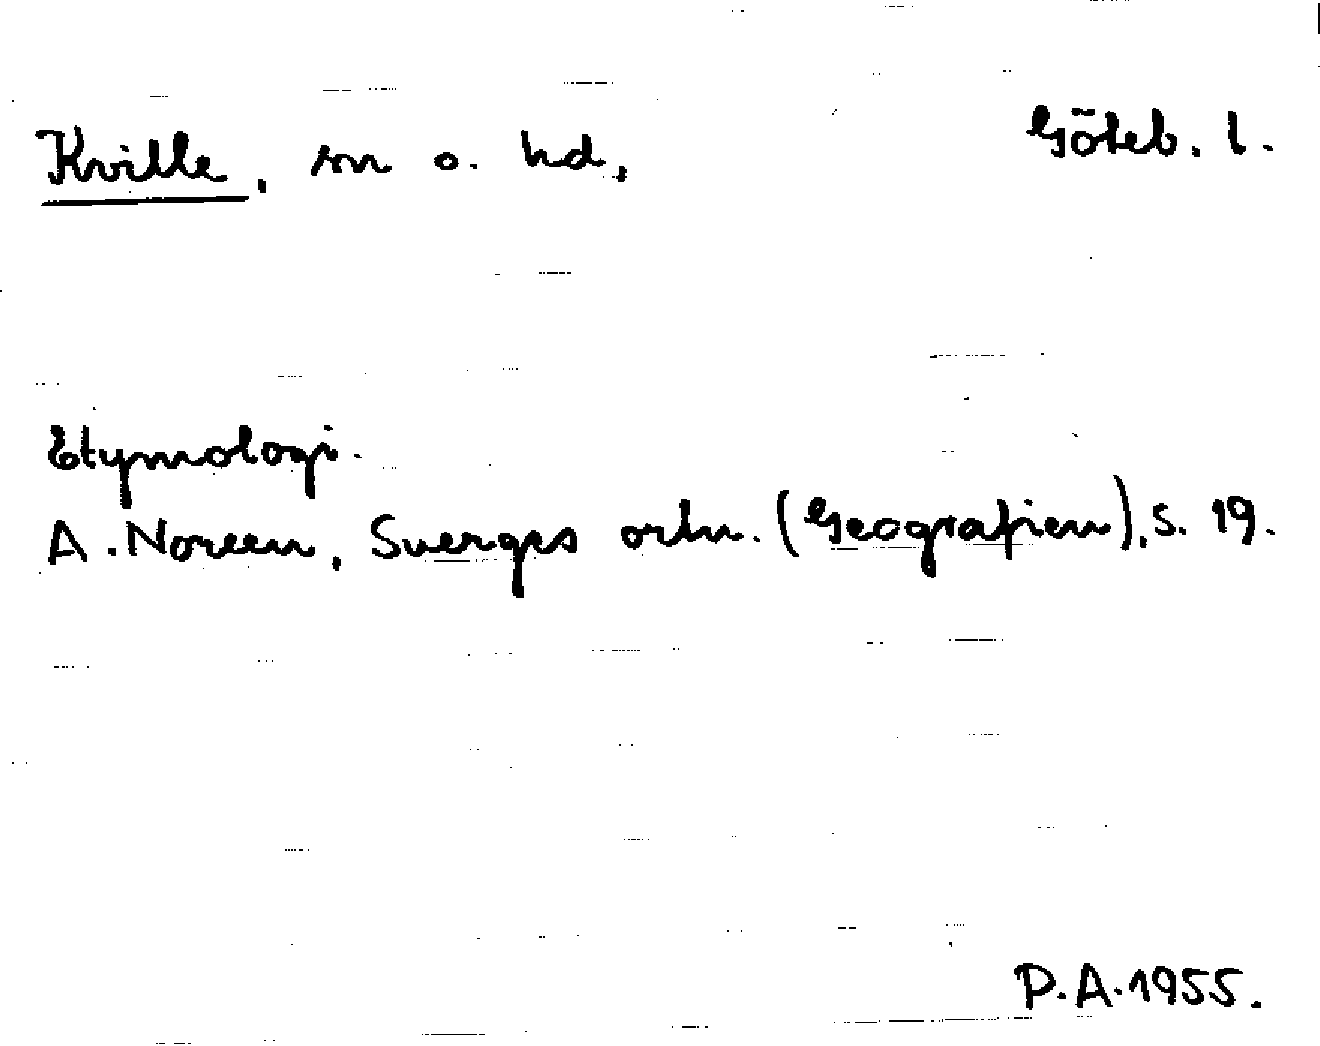 Kville, sn o. hd, Göteb. l.
Etymologi.
A. Noreen, Sverges ortn. (Geografien), s. 19.
P.A. 1955.